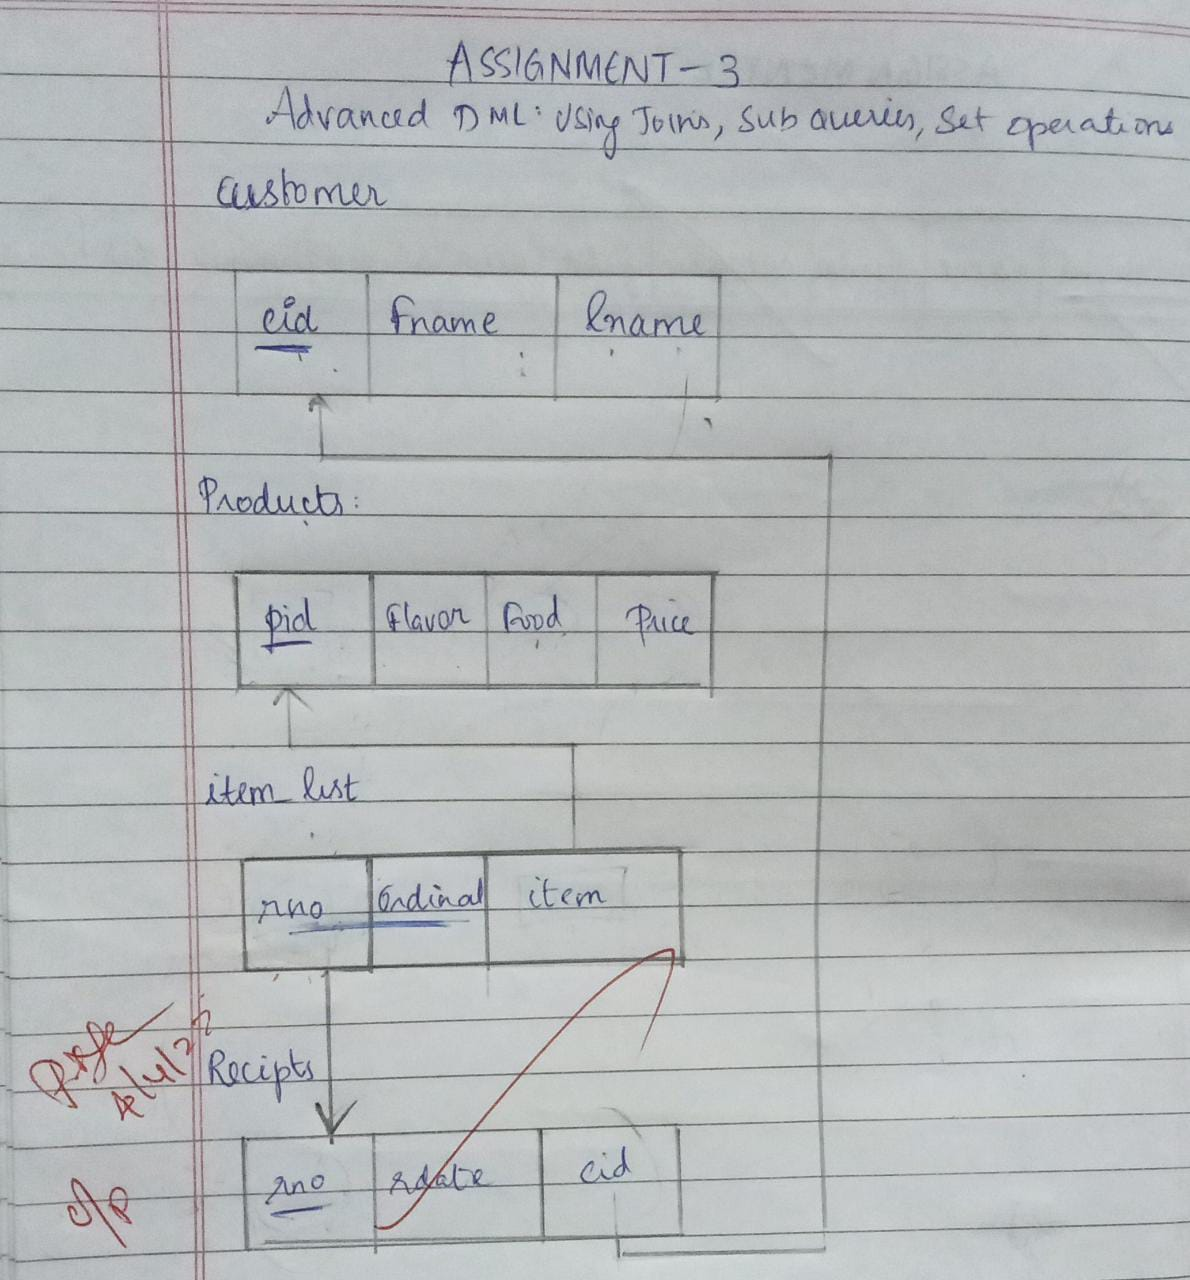 ASSIGNMENT-3
Advanced DML: Using Joins, Sub queries, Set operations
Customer
cid fname lname
Products:
pid flavor food Price
item_list
rno Ordinal item
Recipts
rno rdate cid
o/p